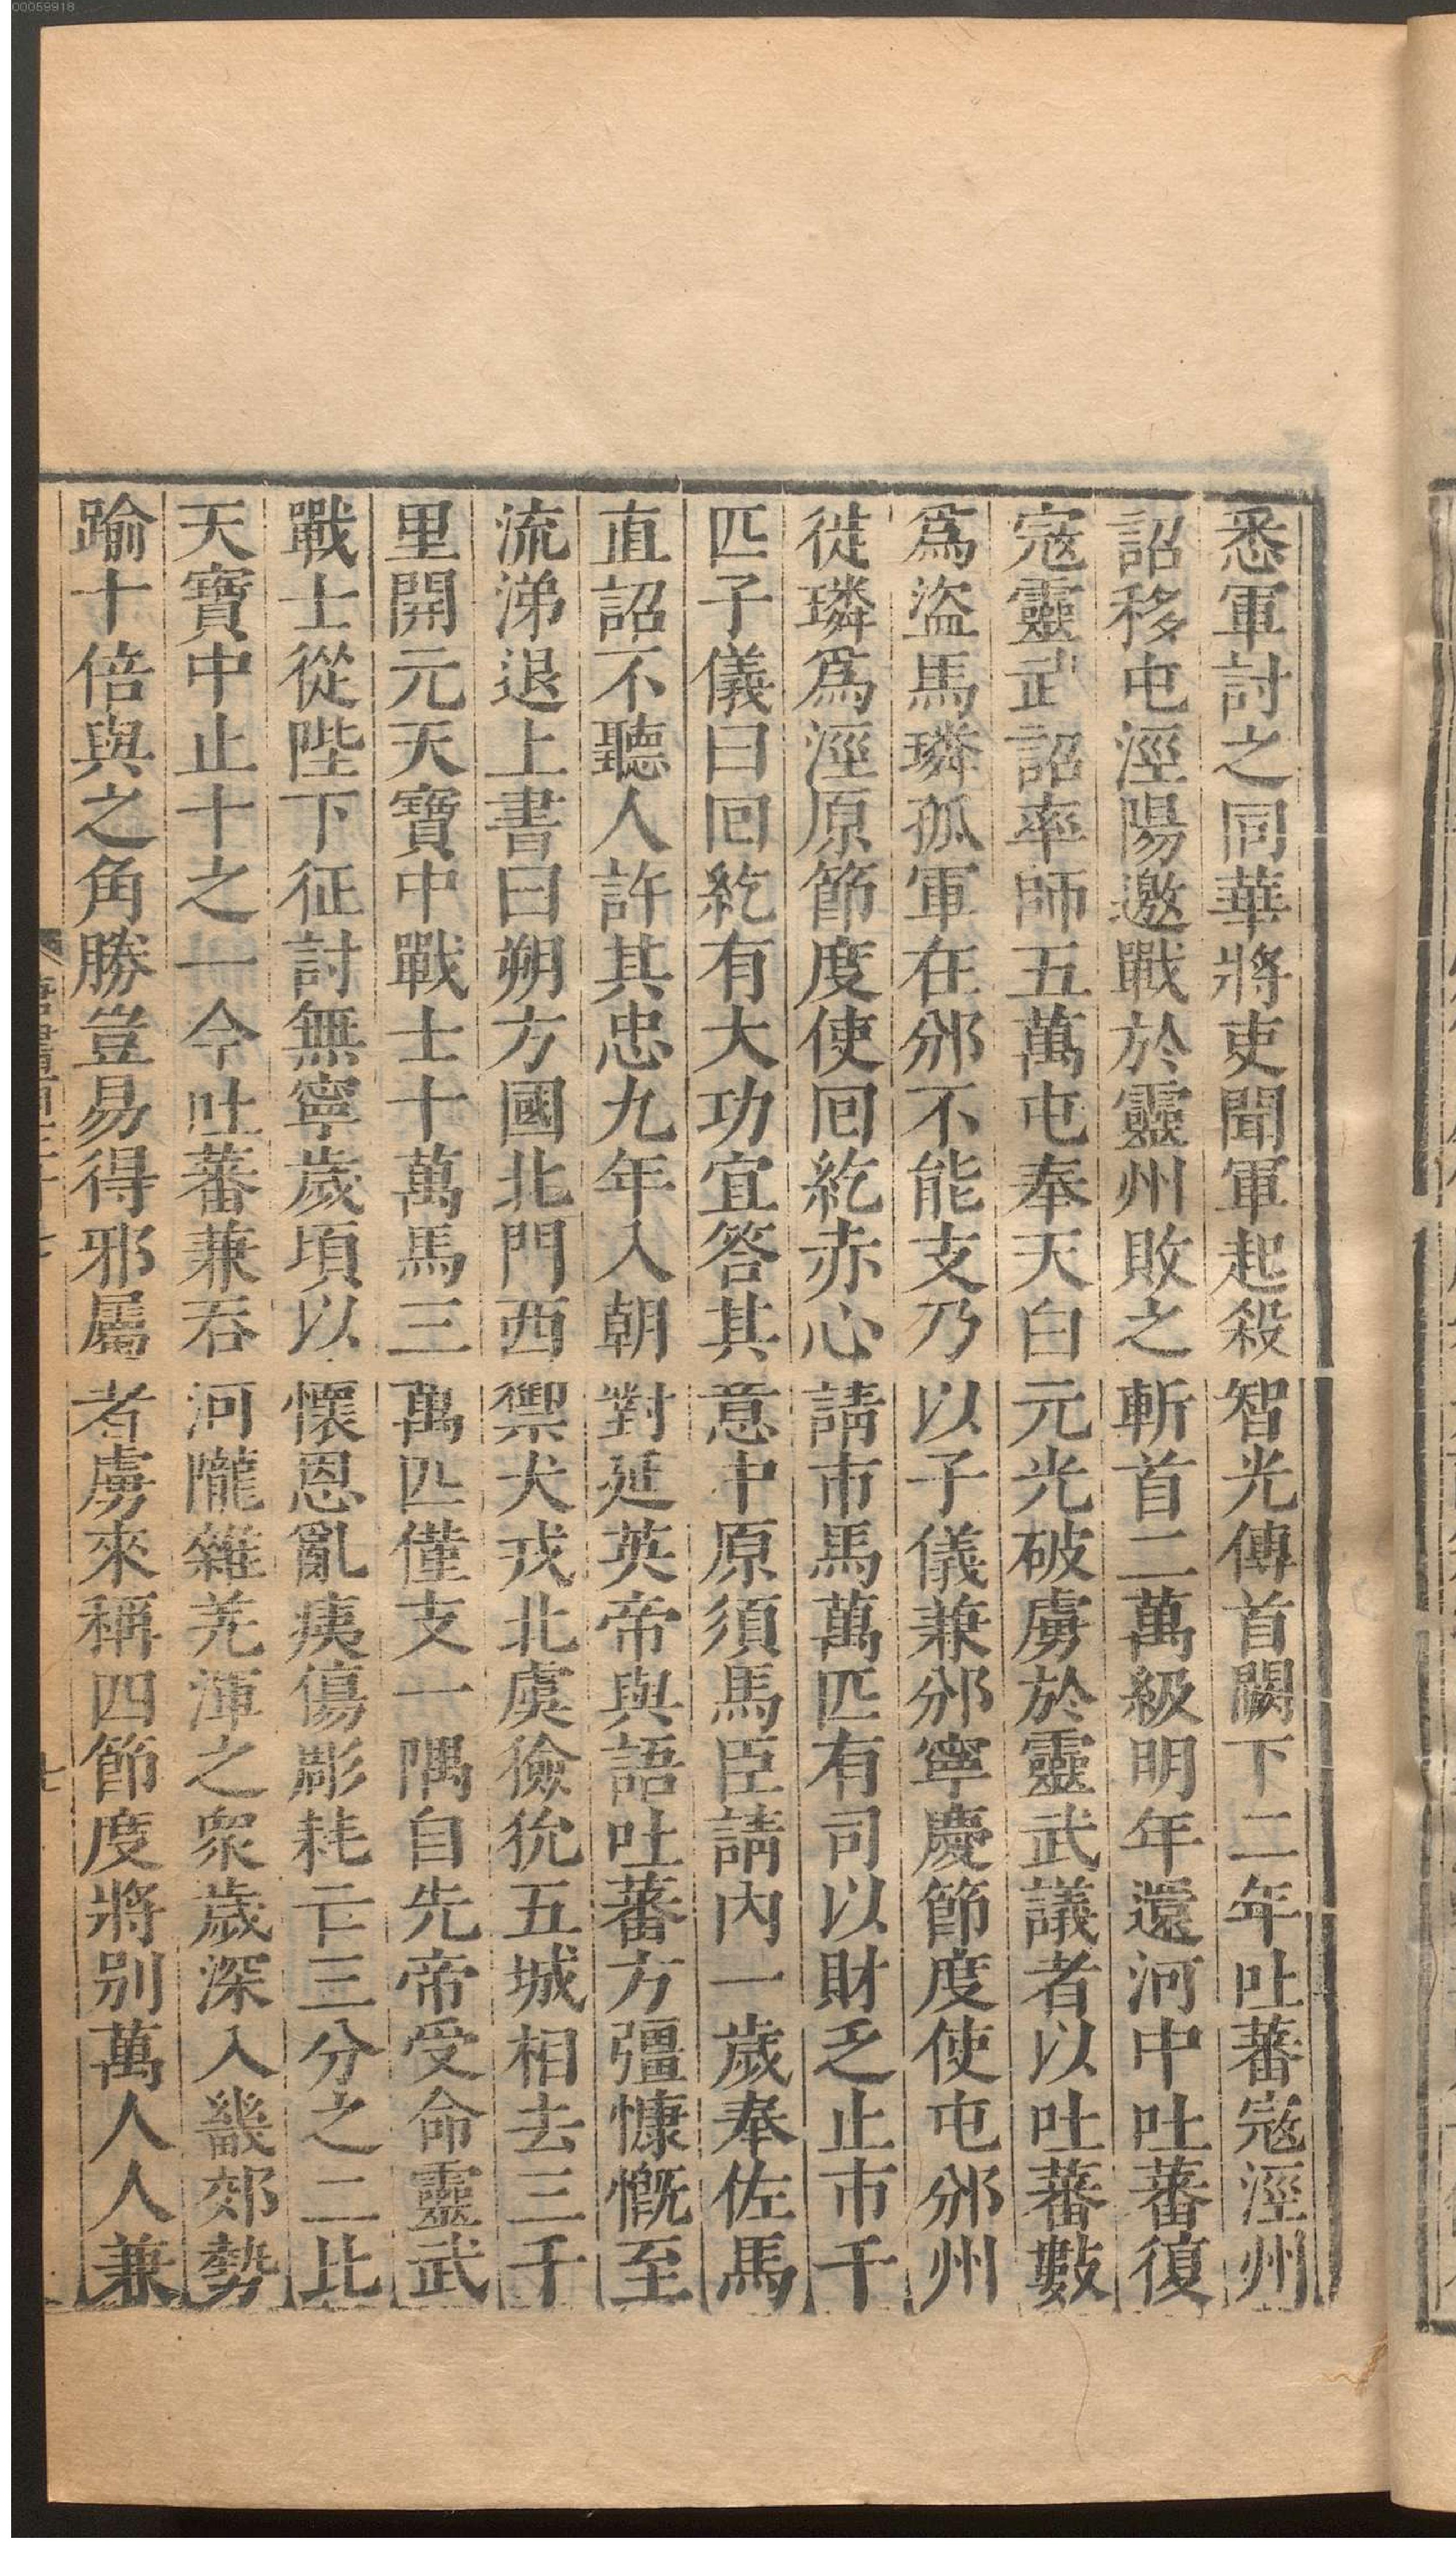 00059918
悉軍討之同華將吏聞軍起殺智光傳首闕下二年吐蕃宼涇州
詔移屯涇陽邀戰於靈州敗之斬首二萬級明年還河中吐蕃復
宼靈武詔率師五萬屯奉天白元光破虜於靈武議者以吐蕃數
爲盜馬璘孤軍在邠不能支乃以子儀兼邠寧慶節度使屯邠州
徙璘爲涇原節度使回紇赤心請市馬萬匹有司以財乏止市千
匹子儀曰回紇有大功宜答其意中原須馬臣請內一歲奉佐馬
直詔不聽人許其忠九年入朝對延英帝與語吐蕃方彊慷慨至
流涕退上書曰朔方國北門西禦犬戎北虞獫狁五城相去三千
里開元天寶中戰士十萬馬三萬匹僅支一隅自先帝受命靈武
戰士從陛下征討無寧歲頃以懷恩亂痍傷彫耗亡三分之二比
天寶中止十之一今吐蕃兼吞河隴雜羌渾之衆歲深入畿郊勢
踰十倍與之角勝豈易得邪屬者虜來稱四節度將别萬人人兼